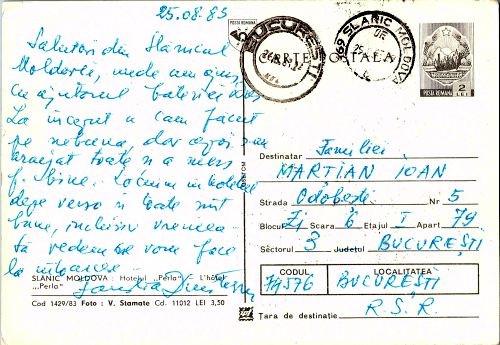 25.08.83
Salutări din Slănicul
Moldovei, unde am ajuns
cu ajutorul bateriei
La început a cam făcut
pe nebuna, dar apoi s-a
aranjat toate și a mers
f. bine. Locuim in hotelul
depe verso și toate sunt
bune, inclusiv vremea
să vedem ce vom face
la intoarcere
SLANIC MOLDOVA : Hotelul „Perla” - L'hôtel
„Perla”
Familia
Cod 1429/83 Foto : V. Stamate Cd. 11012 LEI 3,50
POSTA ROMANA
BUCURESTI
SLANIC MOLDOVA
CARTE POSTALA
POSTA ROMANA 2 LEI
Destinatar Familiei
MARTIAN IOAN
Strada Odobești Nr 5
Blocul Z1 Scara 6 Etajul I Apart 79
Sectorul 3 Județul BUCUREȘTI
CODUL LOCALITATEA
74576 BUCUREȘTI
R.S.R.
Țara de destinație